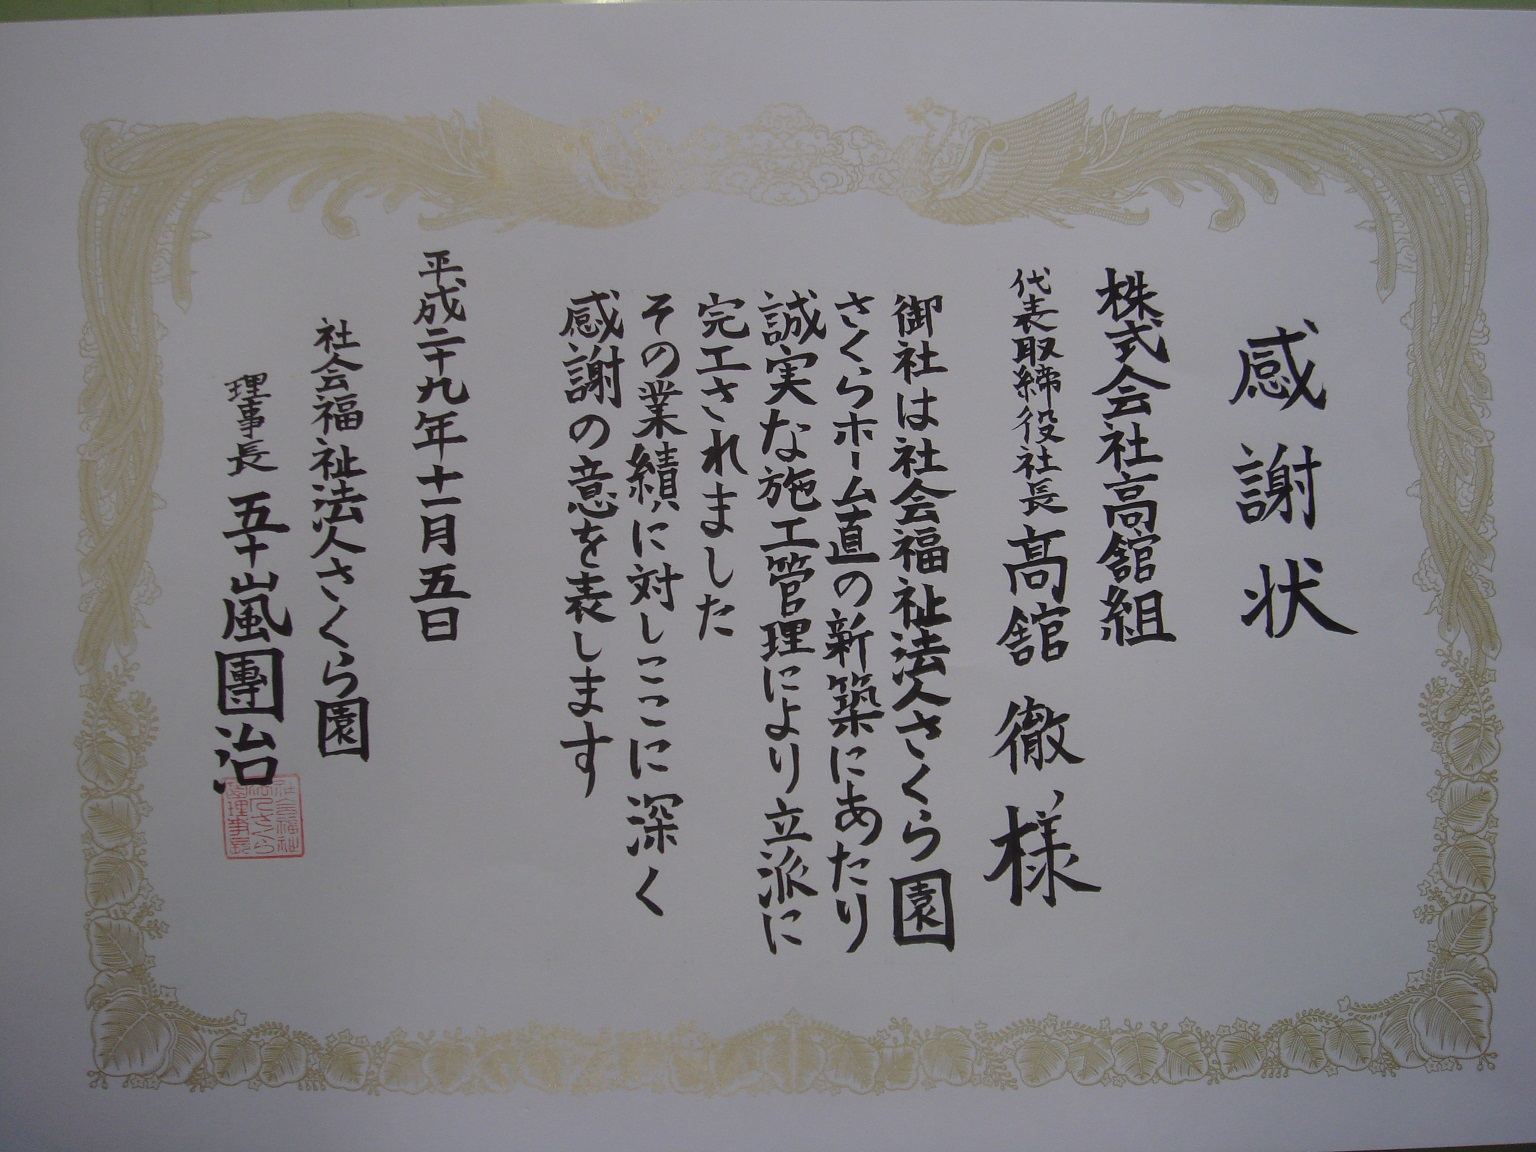 感謝状
株式会社高舘組
代表取締役社長 髙舘 徹 様
御社は社会福祉法人さくら園
さくらホーム直の新築にあたり
誠実な施工管理により立派に
完工されました
その業績に対しここに深く
感謝の意を表します
平成二十九年十一月五日
社会福祉法人さくら園
理事長 五十嵐團治